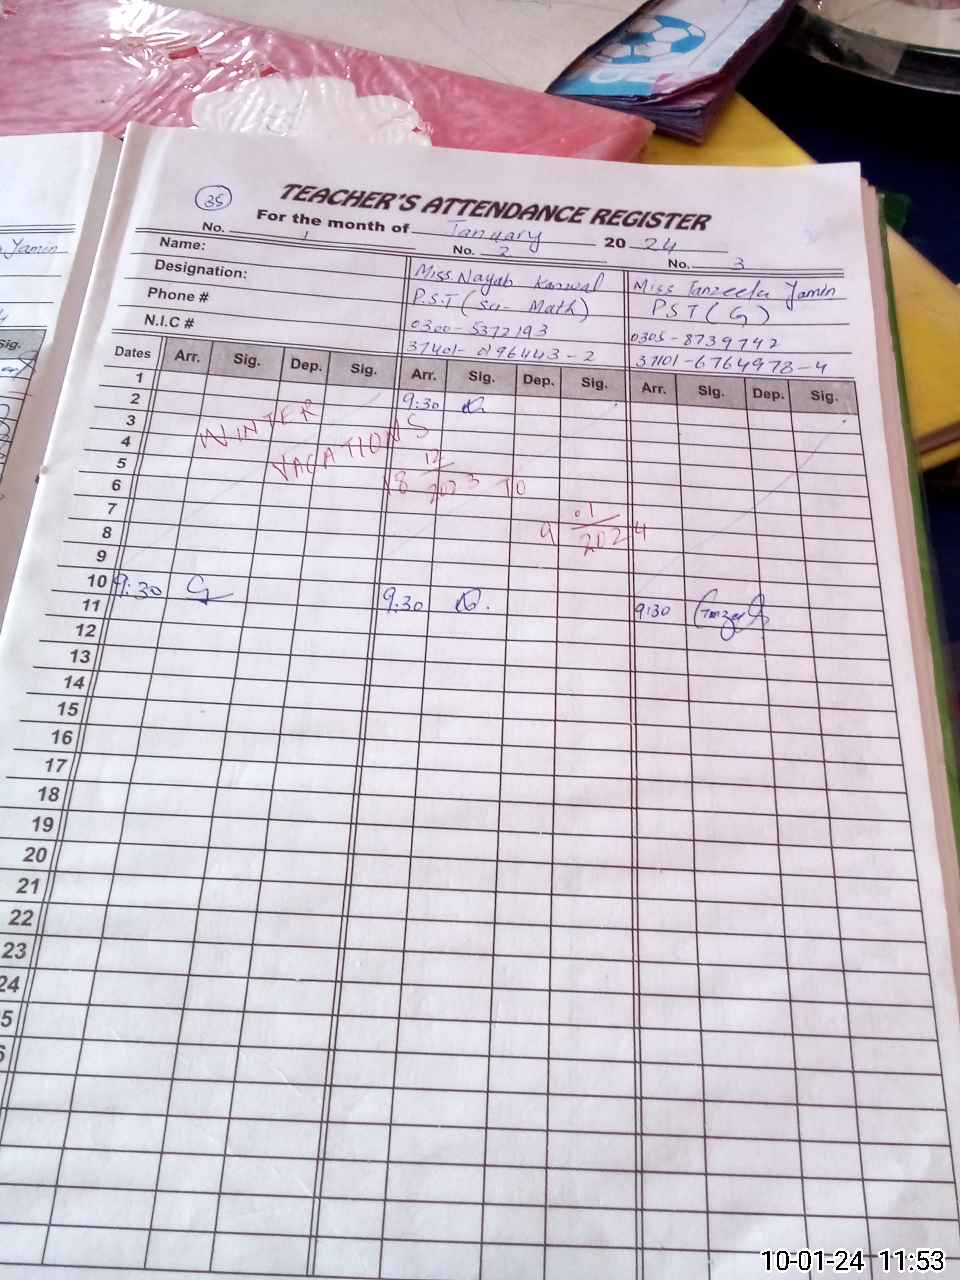 Yamin
Sig.
35
TEACHER'S ATTENDANCE REGISTER
For the month of January 20 24
No. 1 No. 2 No. 3
Name: Miss Nayab Kanwal Miss Tanzeela Yamin
Designation: P.S.T (Sci- Math) P S T ( G )
Phone # 0300-5372193 0305-8739742
N.I.C # 37401-0196443-2 37101-6764978-4
Dates Arr. Sig. Dep. Sig. Arr. Sig. Dep. Sig. Arr. Sig. Dep. Sig.
1
2 9:30
3 WINTER
4 VACATIONS
5 18 12
6 2023 TO
7 9 01
8 2024
9
10 9:30 9:30 9:30
11
12
13
14
15
16
17
18
19
20
21
22
23
24
5
10-01-24 11:53